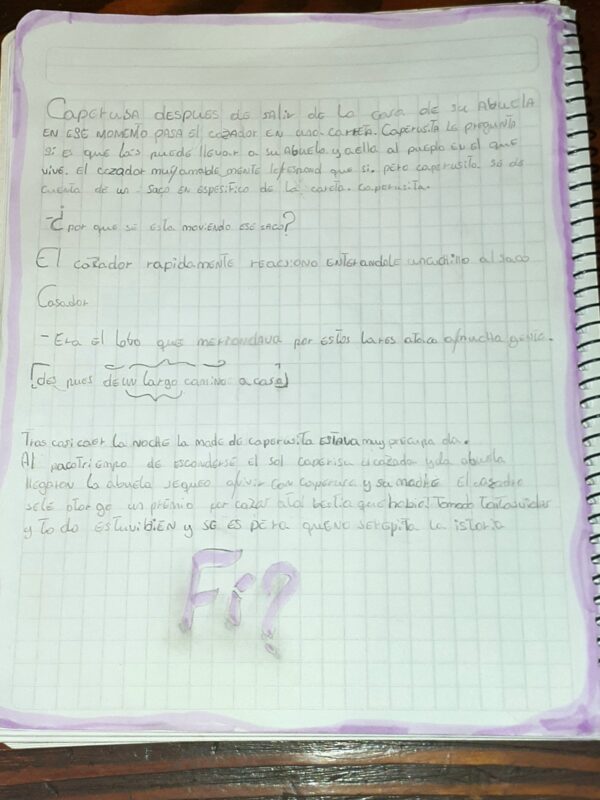 Caperusa despues de salir de la casa de su Abuela
EN ESE MOMEMO PASA EL COZADOR EN una CARETA. Caperusita le pregunto
si el que las puede llevar a su Abuela y a ella al pueplo en el que
vive. El cazador muy amable mente le respond que si. pero caperusita. se de
cuenta de un saco EN ESPESIFICO de la careta. caperusita.
-¿por que se esta moviendo ese saco?
El cazador rapidamente reacsiono ENTERANDOLE uncuchillo al saco
Casador
- Era el lobo que merrondava por estos lares ataco a mucha genie.
[des pues de un largo camino a casa]
Tras casi caer la noche la made de caperusita estava muy precupa da.
Al pacotriempo de esconderse el sol caperisu el cazado y la abuela
llegaron la abuela sequeo a vivir con caperura y su madre El cazadre
sele otorgo un premio por cazar atal bestia que habiel tomado tantasvidas
y todo estuvibien y se es pera queno serepita la istoria
Fi?